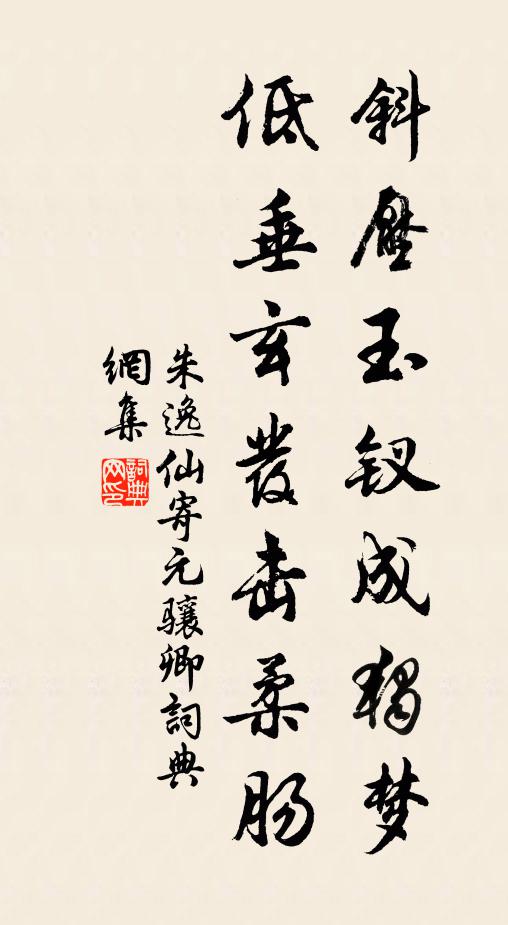 斜壓玉钗成獨梦
低垂玄發击柔肠
朱逸仙寄元骧卿詞典
網集
詞典网印